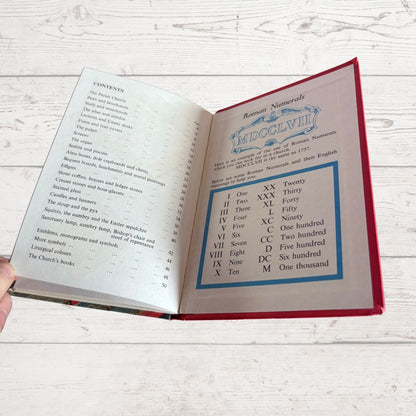 CONTENTS
The Parish Church
Pews and benchends
Stalls and misericords
The altar and
Lecterns and Litany desks
Fonts and font covers
The pulpit
Screens
The organ
Sedilia and piscina
Almsboxes, dole cupboards and chests
Bequest boards, hatchments and mural paintings
Stone coffins, brasses and ledger stones
Creed stones and hour-glasses
Stained glass
Candles and lanterns
The stoup and the pyx
Squints, the aumbry and the Easter sepulchre
Sanctuary lamp, aumbry lamp, Bishop's chair and
stool of repentance
Emblems, monograms and symbols
More symbols
Liturgical colours
The Church's books
44
46
48
50
Roman Numerals
MDCCLVII
Here is an example of the use of Roman Numerals
which you may look for in a church.
MDCCLVII is the same as 1757.
Below are some Roman Numerals and their English
meanings to help you.
I One XX Twenty
II Two XXX Thirty
III Three XL Forty
IV Four L Fifty
V Five XC Ninety
VI Six C One hundred
VII Seven CC Two hundred
VIII Eight D Five hundred
IX Nine DC Six hundred
X Ten M One thousand